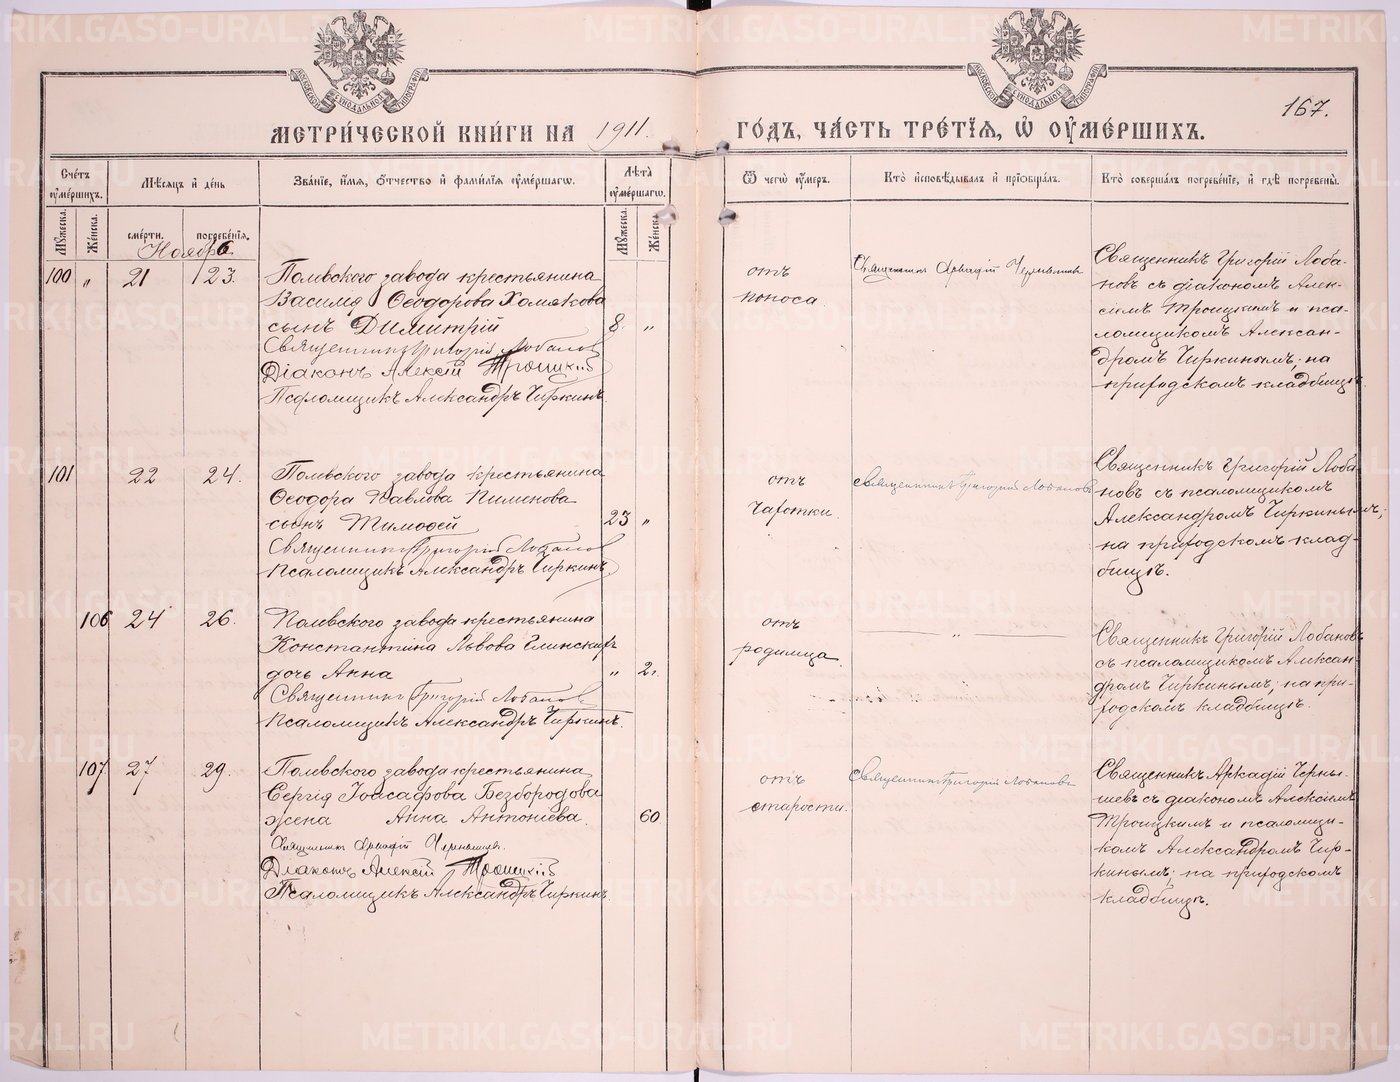 МЕТРИ́ЧЕСКОЙ КНИ́ГИ НА 1911. ГО́ДЪ, ЧА́СТЬ ТРЕ́ТІѦ, Ѡ҆ ОУ҆МЕ́РШИХЪ.
167.
МОСКОВСКОЙ СѴНОДАЛЬНОЙ ТИПОГРАФІИ
МОСКОВСКОЙ СѴНОДАЛЬНОЙ ТИПОГРАФІИ
Сче́тъ оу҆ме́ршихъ.
Мѣ́сѧцъ и҆ де́нь
Зва́нїе, и҆́мѧ, ѻ҆́тчество и҆ фами́лїѧ оу҆ме́ршагѡ.
Лѣ́та оу҆ме́ршагѡ.
Ѿ чегѡ̀ оу҆́меръ.
Кто̀ и҆сповѣ́дывалъ и҆ прїѡбща́лъ.
Кто̀ соверша́лъ погребе́нїе, и҆ гдѣ̀ погребены̀.
Мꙋ́жеска.
Же́нска.
сме́рти.
погребе́нїѧ.
Мꙋ́жеска.
Же́нска.
Ноябрь
100 „ 21 23.
Полевского завода крестьянина
Василія Ѳеодорова Хомякова
сынъ Димитрій 8. „
Священникъ Григорій Лобановъ
Діаконъ Алексій Троицкій
Псаломщикъ Александръ Чиркинъ.
отъ
поноса.
Священникъ Аркадій Чернышевъ
Священникъ Григорій Лоба-
новъ съ діакономъ Алек-
сіемъ Троицкимъ и пса-
ломщикомъ Алексан-
дромъ Чиркинымъ; на
приходскомъ кладбищѣ
101 22 24.
Полевского завода крестьянина
Ѳеодора Павлова Пименова
сынъ Тимоѳей 23 „
Священникъ Григорій Лобановъ
Псаломщикъ Александръ Чиркинъ
отъ
чахотки.
Священникъ Григорій Лобановъ
Священникъ Григорій Лоба-
новъ съ псаломщикомъ
Александромъ Чиркинымъ;
на приходскомъ клад-
бищѣ.
106 24 26.
Полевского завода крестьянина
Константина Львова Глинскихъ
дочь Анна „ 2г.
Священникъ Григорій Лобановъ
Псаломщикъ Александръ Чиркинъ.
отъ
родимца.
„
Священникъ Григорій Лобановъ
съ псаломщикомъ Алексан-
дромъ Чиркинымъ; на при-
ходскомъ кладбищѣ.
107 27 29.
Полевского завода крестьянина
Сергія Іоасафова Безбородова
жена Анна Антоніева. 60
Священникъ Аркадій Чернышевъ.
Діаконъ Алексій Троицкій
Псаломщикъ Александръ Чиркинъ
отъ
старости.
Священникъ Григорій Лобановъ
Священникъ Аркадій Черны-
шевъ съ діакономъ Алексіемъ
Троицкимъ и псаломщи-
комъ Александромъ Чир-
кинымъ; на приходскомъ
кладбищѣ.
METRIKI.GASO-URAL.RU